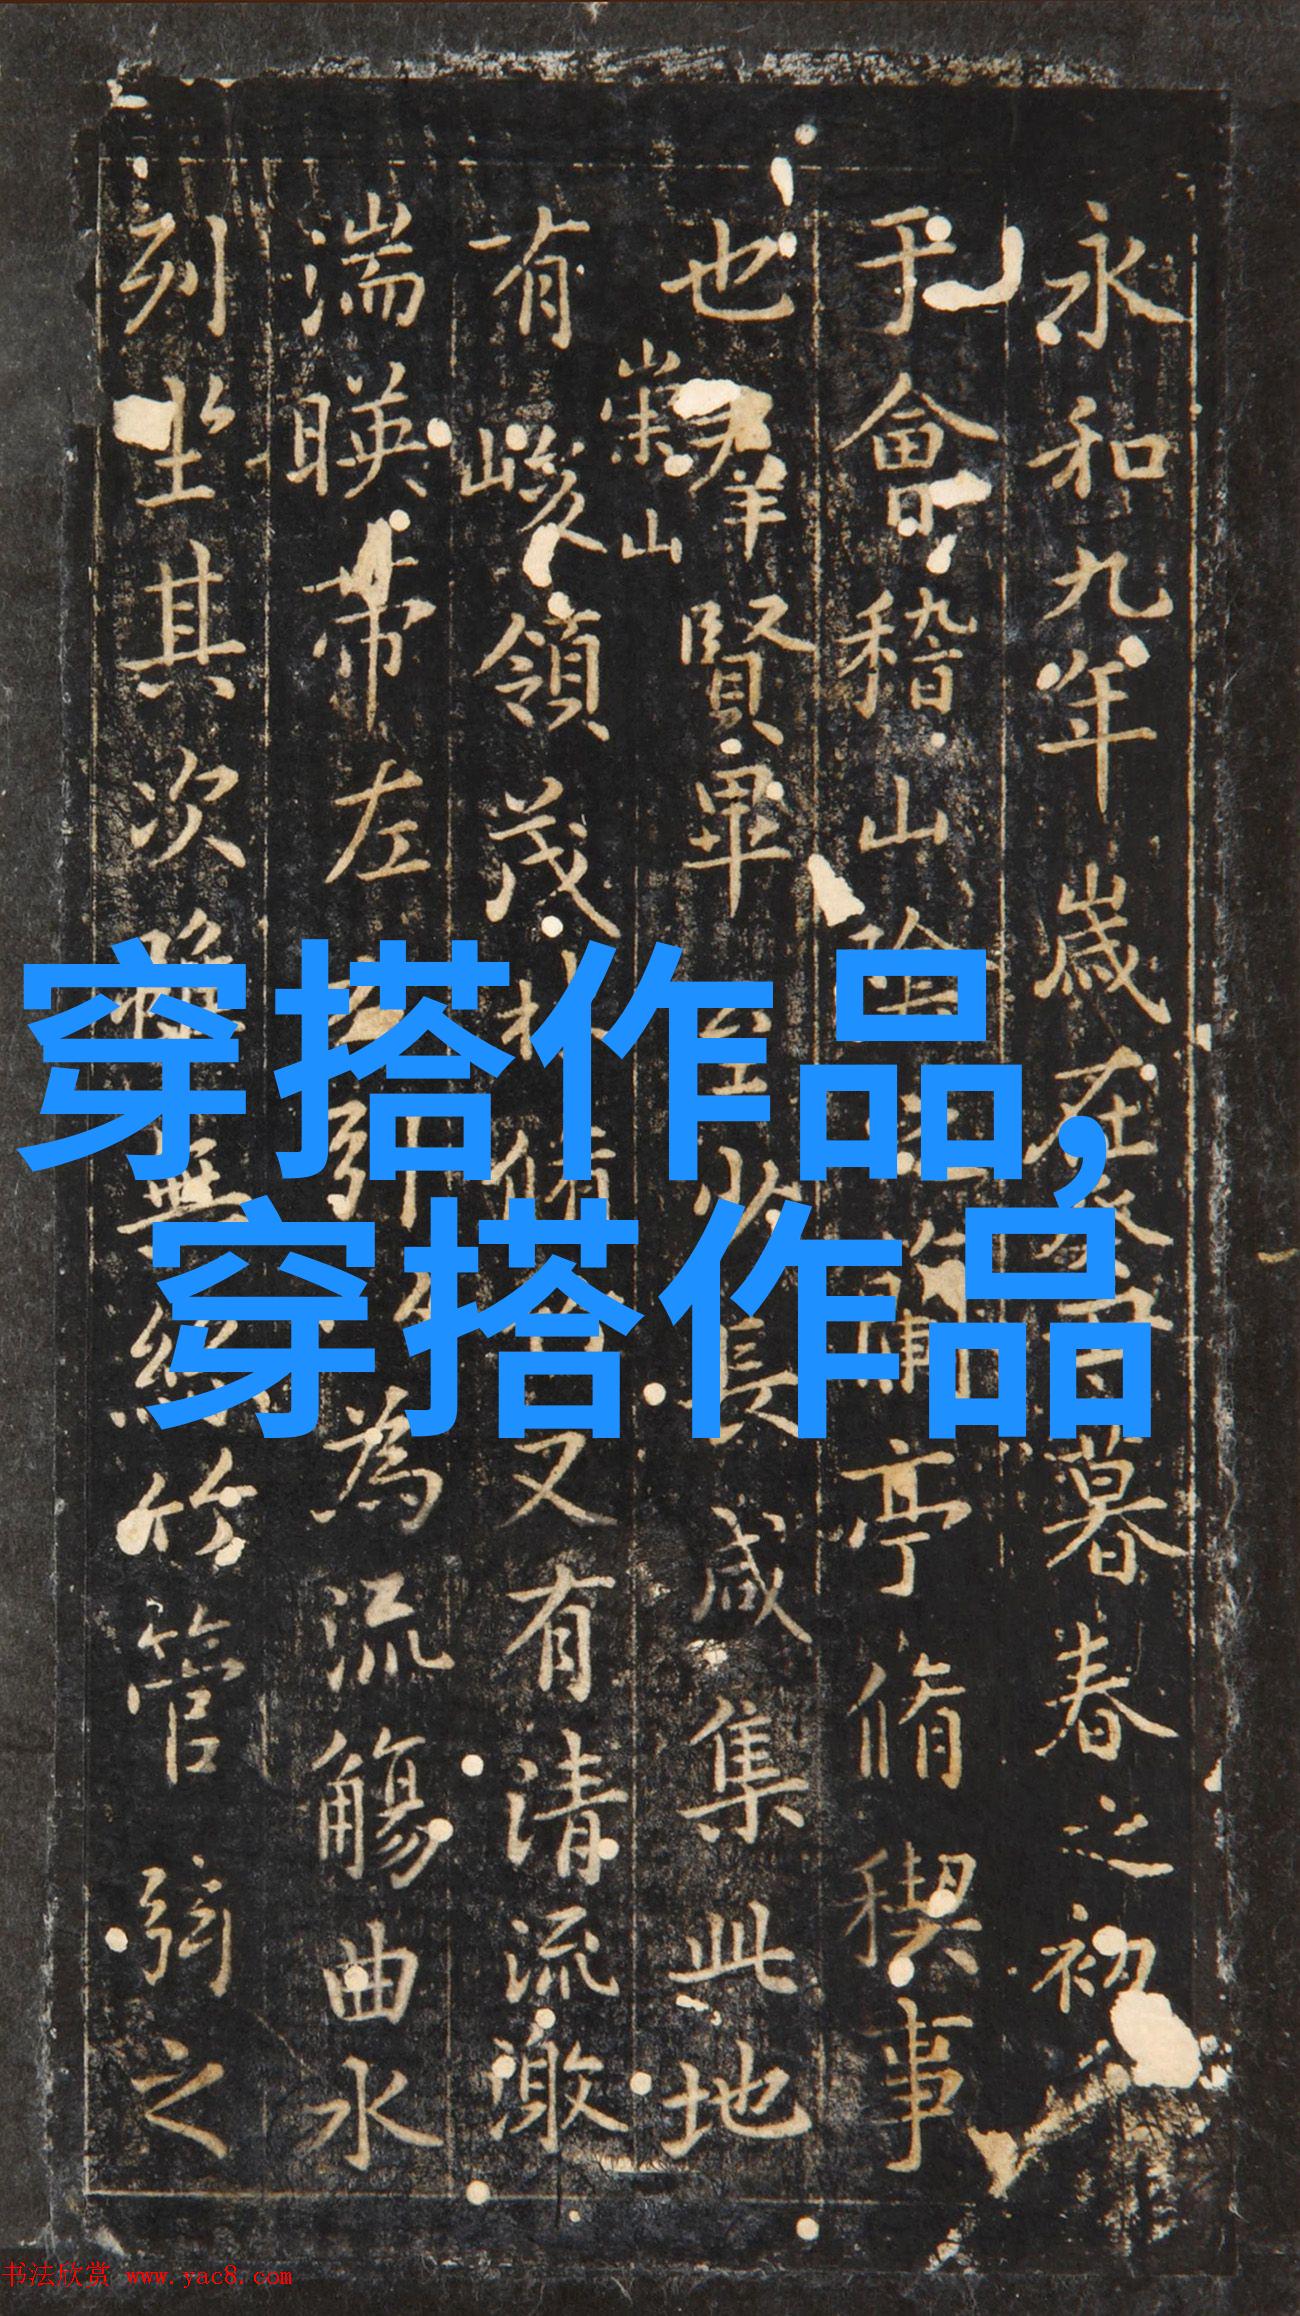 永和九年歲在癸丑暮春之初
于會稽山陰之蘭亭脩稧事
也羣賢畢至少長咸集此地
崇山
有峻領茂林脩竹又有清流激
湍暎帶左右引以為流觴曲水
列坐其次雖無絲竹管弦之
穿搭作品,
穿搭作品
书法欣赏 www.yac8.com